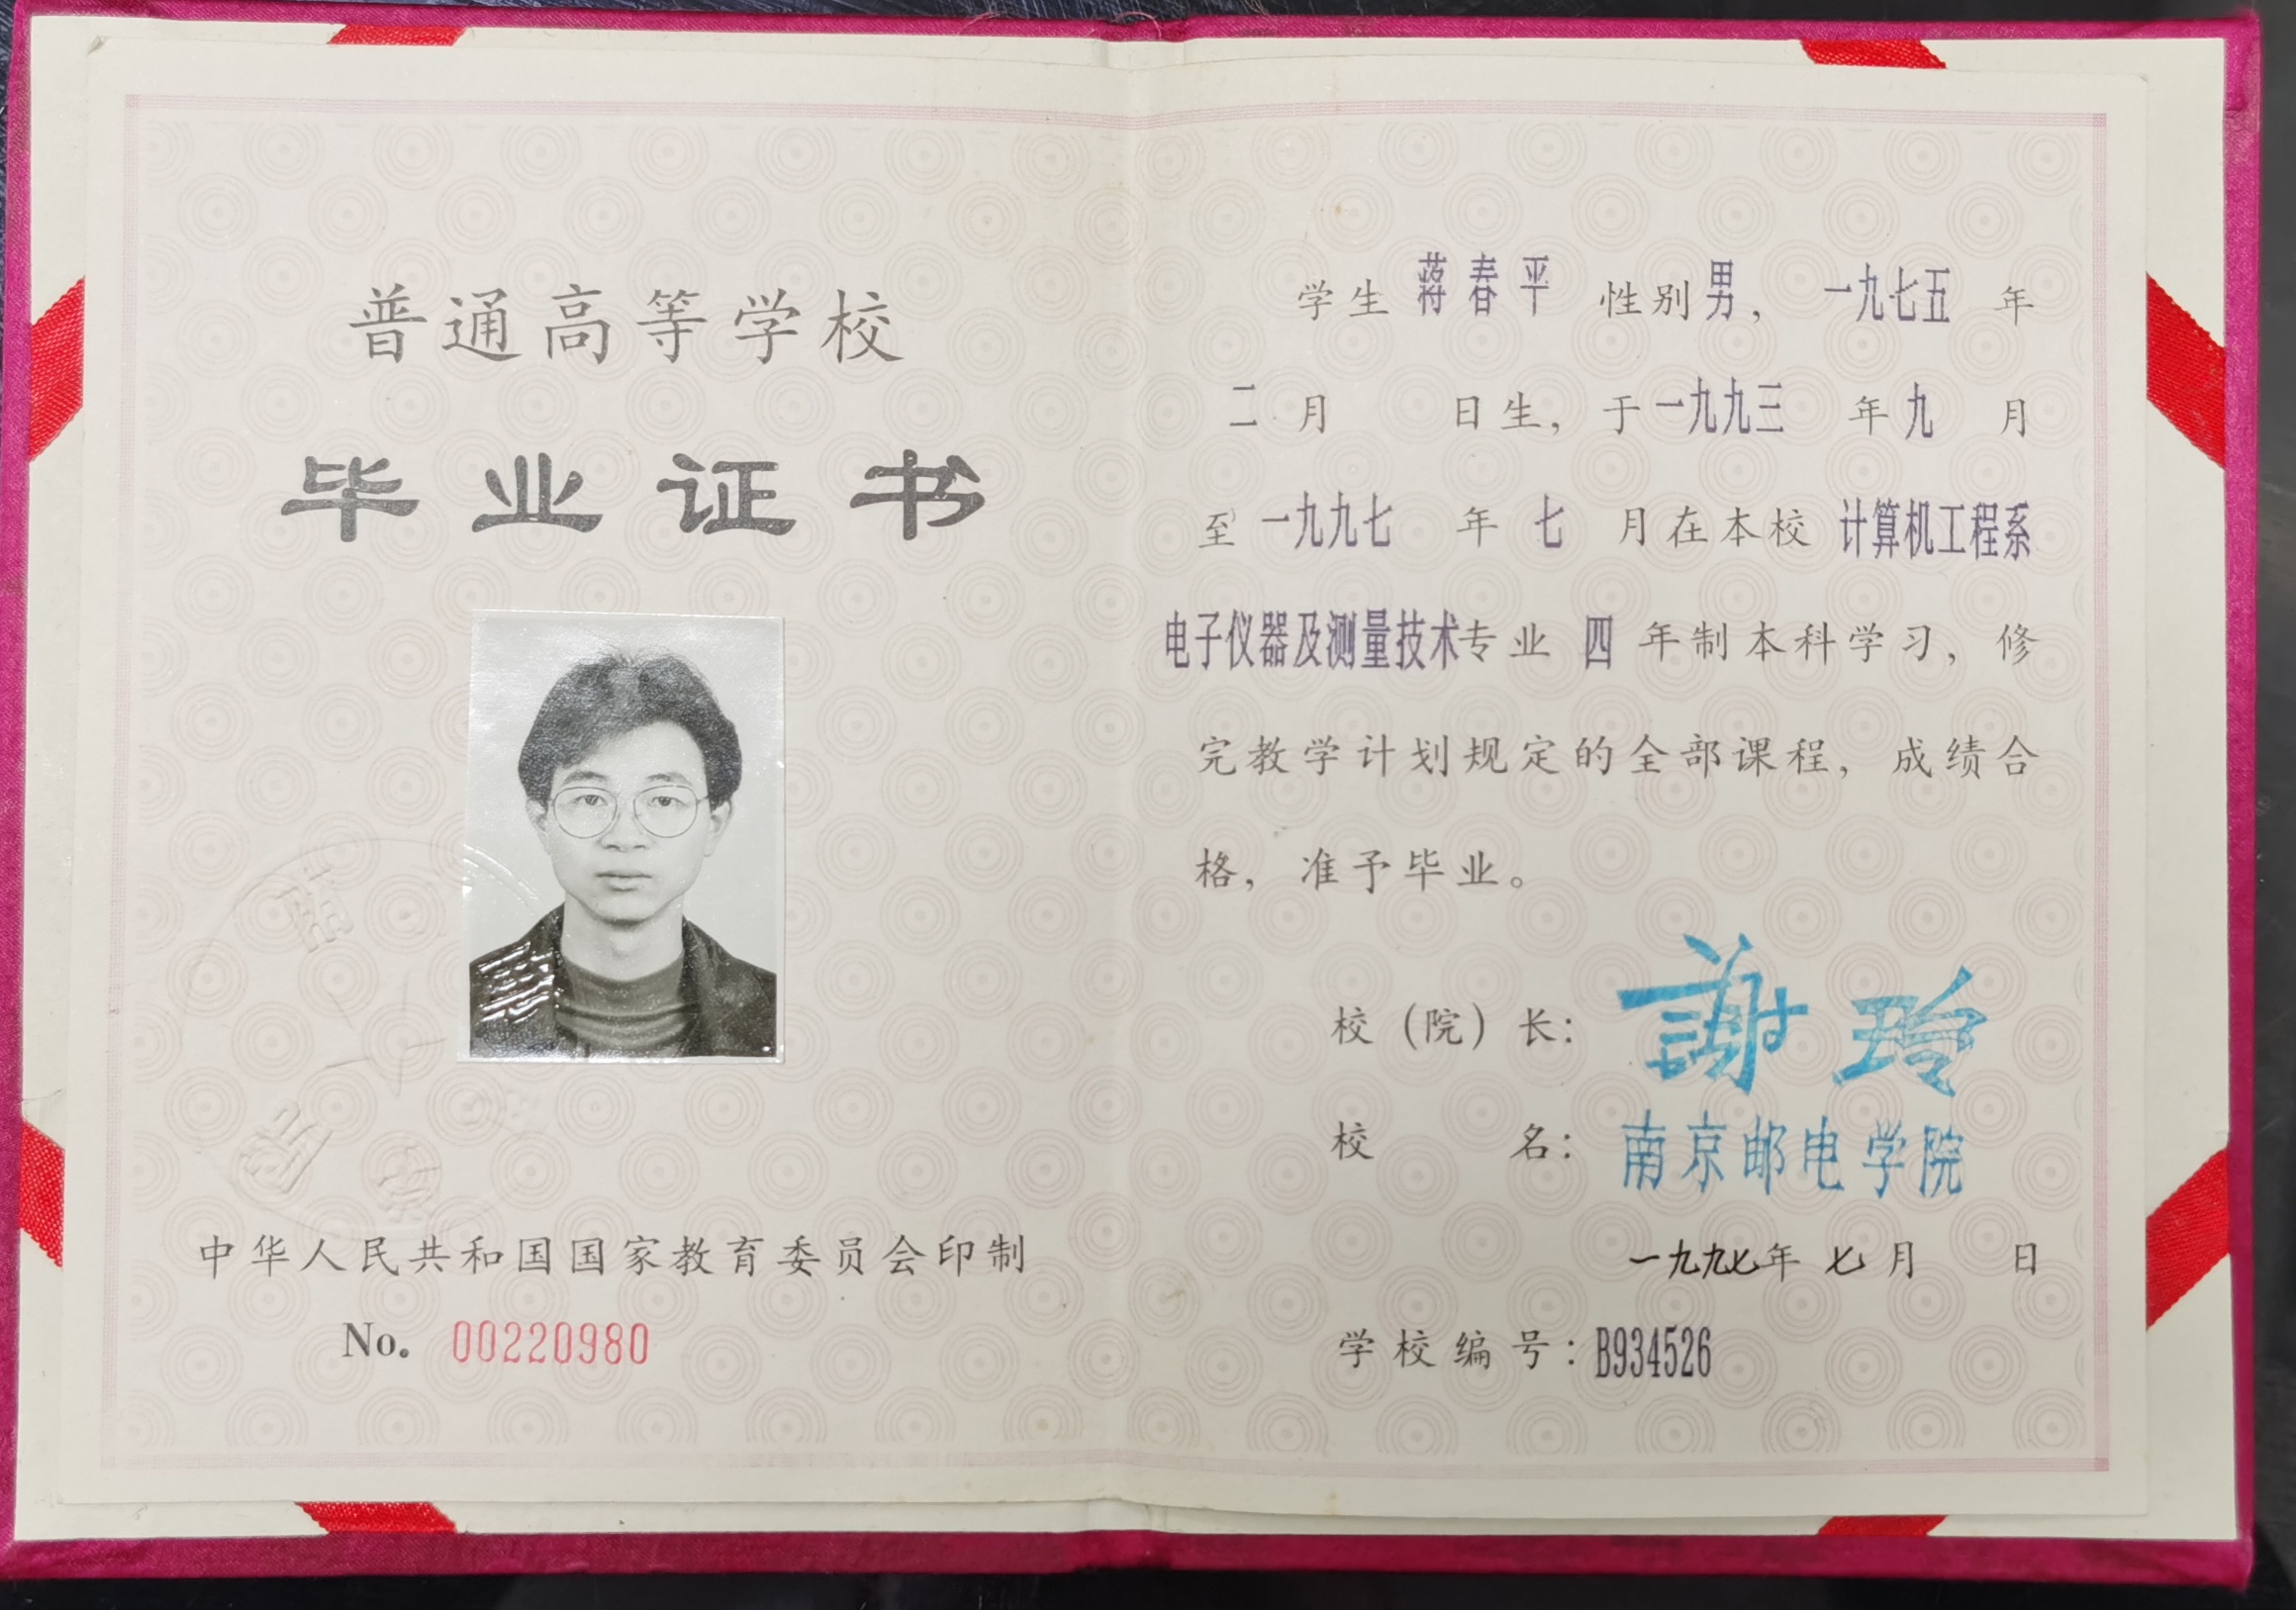 普通高等学校
毕业证书
中华人民共和国国家教育委员会印制
No. 00220980
学生 蒋春平 性别男， 一九七五 年
二 月 日生，于一九九三 年九 月
至 一九九七 年 七 月在本校 计算机工程系
电子仪器及测量技术专业 四 年制本科学习，修
完教学计划规定的全部课程，成绩合
格，准予毕业。
校（院）长：謝玲
校 名：南京邮电学院
一九九七年 七月 日
学校编号：B934526